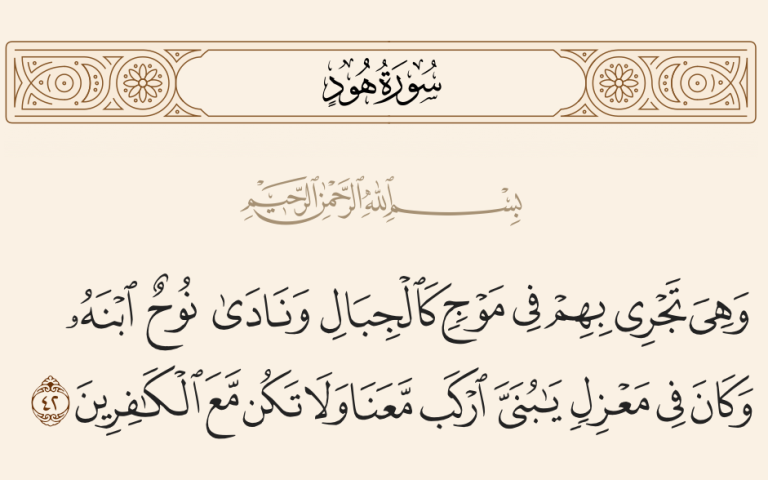 سُورَةُ هُودٍ
بِسْمِ ٱللَّهِ ٱلرَّحْمَٰنِ ٱلرَّحِيمِ
وَهِىَ تَجْرِى بِهِمْ فِى مَوْجٍ كَٱلْجِبَالِ وَنَادَىٰ نُوحٌ ٱبْنَهُۥ
وَكَانَ فِى مَعْزِلٍ يَـٰبُنَىَّ ٱرْكَب مَّعَنَا وَلَا تَكُن مَّعَ ٱلْكَـٰفِرِينَ ٤٢